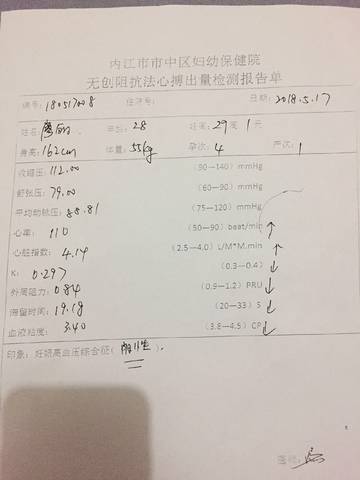 内江市市中区妇幼保健院
无创阻抗法心搏出量检测报告单
编号: 18051708 住院号: 日期: 2018.5.17
姓名: 廖丽 年龄: 28 妊周: 29 周 1 天
身高: 162cm 体重: 55kg 孕次: 4 产次: 1
收缩压: 112.00 (90—140) mmHg
舒张压: 79.00 (60—90) mmHg
平均动脉压: 88.81 (75—120) mmHg
心率: 110 (50—90) beat/min ↑
心脏指数: 4.14 (2.5—4.0) L/M*M.min ↑
K: 0.297 (0.3—0.4) ↓
外周阻力: 0.84 (0.9—1.2) PRU ↓
滞留时间: 19.18 (20—33) S ↓
血液粘度: 3.40 (3.8—4.5) CP ↓
印象: 妊娠高血压综合征( 阴性 ).
医师: